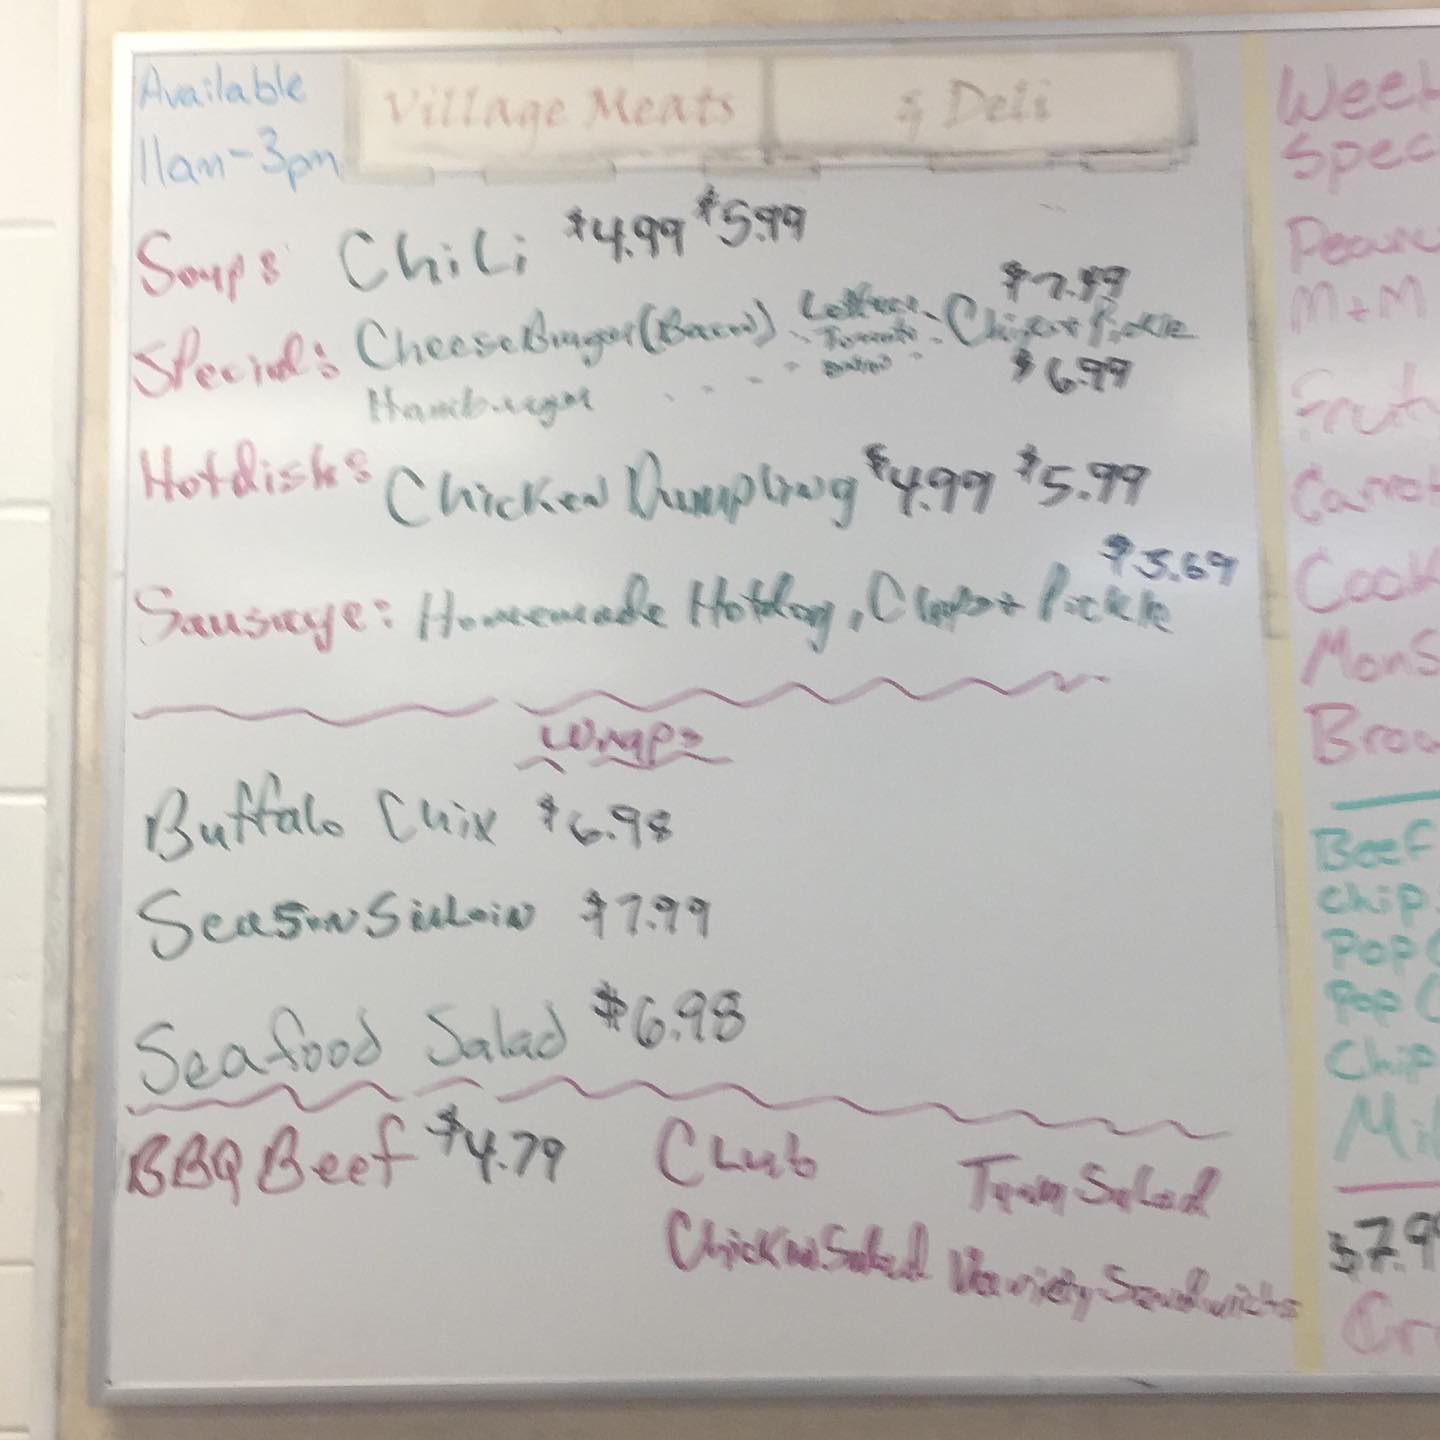 Available
11am-3pm
Village Meats & Deli
Soup: Chili $4.99 $5.99
Special: CheeseBurger (Bacon) - Lettuce - Chips + Pickle $7.49
Tomato
onion
Hamburger - - - - $6.99
Hotdish: Chicken Dumpling $4.99 $5.99
Sausage: Homemade Hotdog, Chips + Pickle $3.69
Wraps
Buffalo Chix $6.98
Season Sirloin $7.99
Seafood Salad $6.98
BBQ Beef $4.79 Club Tuna Salad
Chicken Salad Variety Sandwichs
M+M
Fruit
Beef
Chip
Pop (
Pop (
Chip
$7.9